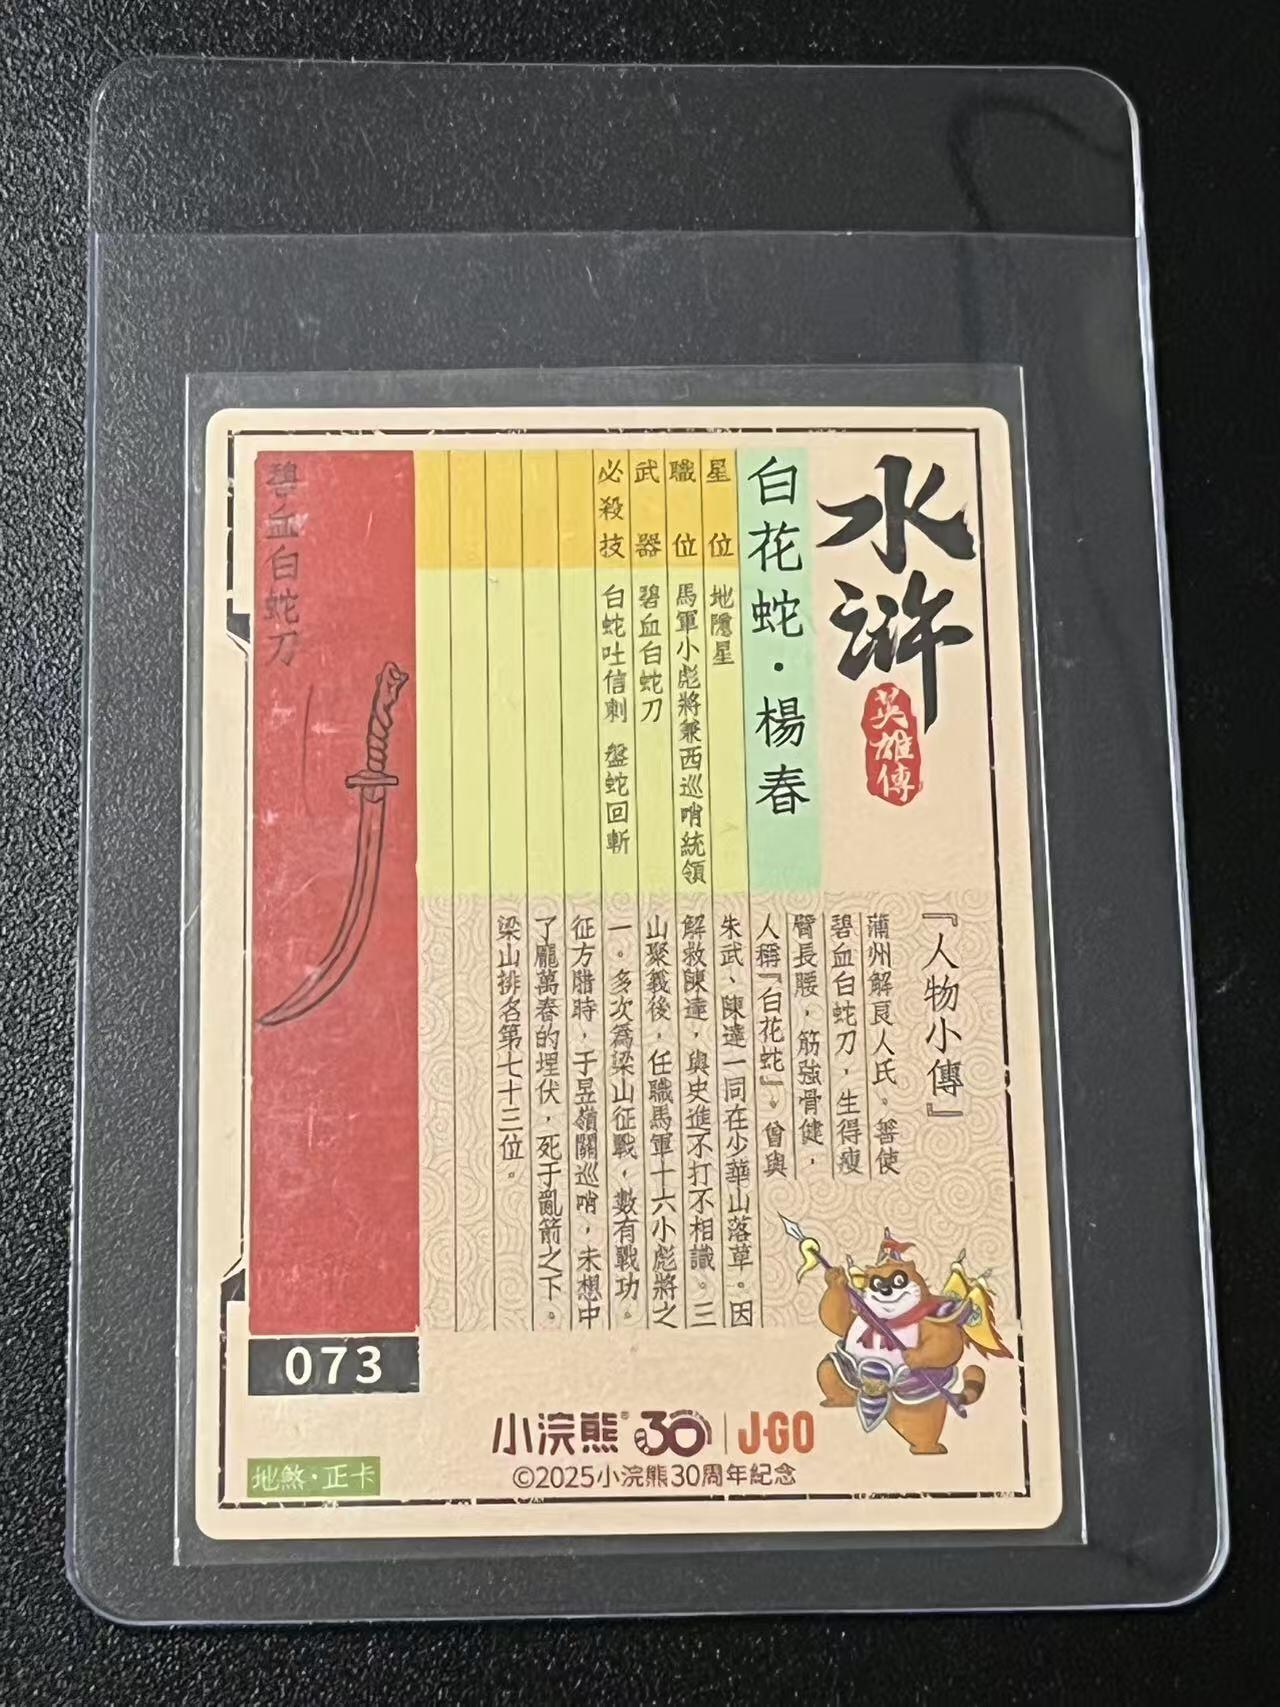 水滸
英雄傳
白花蛇·楊春
星位 地隱星
職位 馬軍小彪將兼西巡哨統領
武器 碧血白蛇刀
必殺技 白蛇吐信刺 盤蛇回斬
『人物小傳』
蒲州解良人氏。善使
碧血白蛇刀，生得瘦
臂長腰，筋強骨健，
人稱『白花蛇』。曾與
朱武、陳達一同在少華山落草。因
解救陳達，與史進不打不相識。三
山聚義後，任職馬軍十六小彪將之
一。多次為梁山征戰，數有戰功。
征方腊時，于昱嶺關巡哨，未想中
了龐萬春的埋伏，死于亂箭之下。
梁山排名第七十三位。
碧血白蛇刀
073
地煞·正卡
小浣熊® 30 J-GO
©2025小浣熊30周年紀念